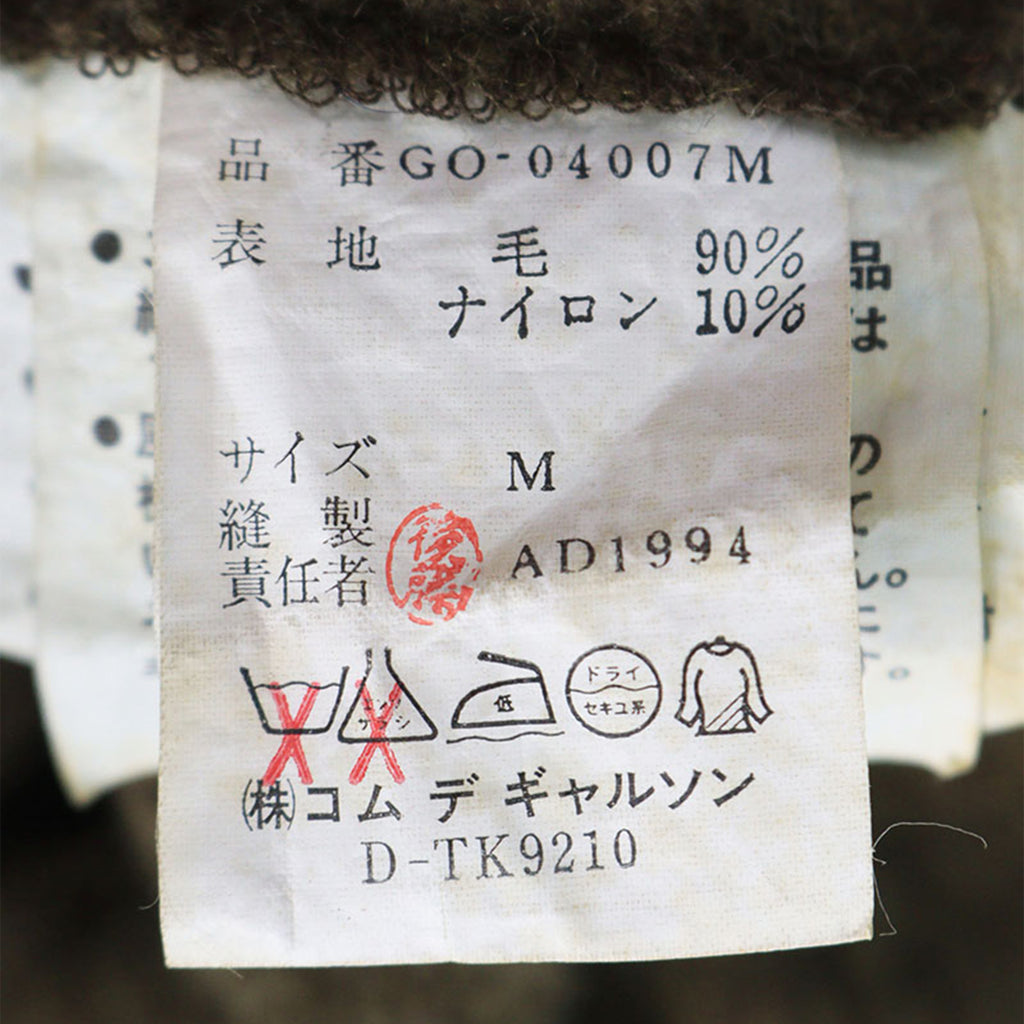 品番GO-04007M
表地 毛 90%
ナイロン 10%
サイズ M
縫製
責任者 AD1994
エンソ
サラシ
低
ドライ
セキユ系
㈱コム デ ギャルソン
D-TK9210
品
は
の
て
ん。
に
す。